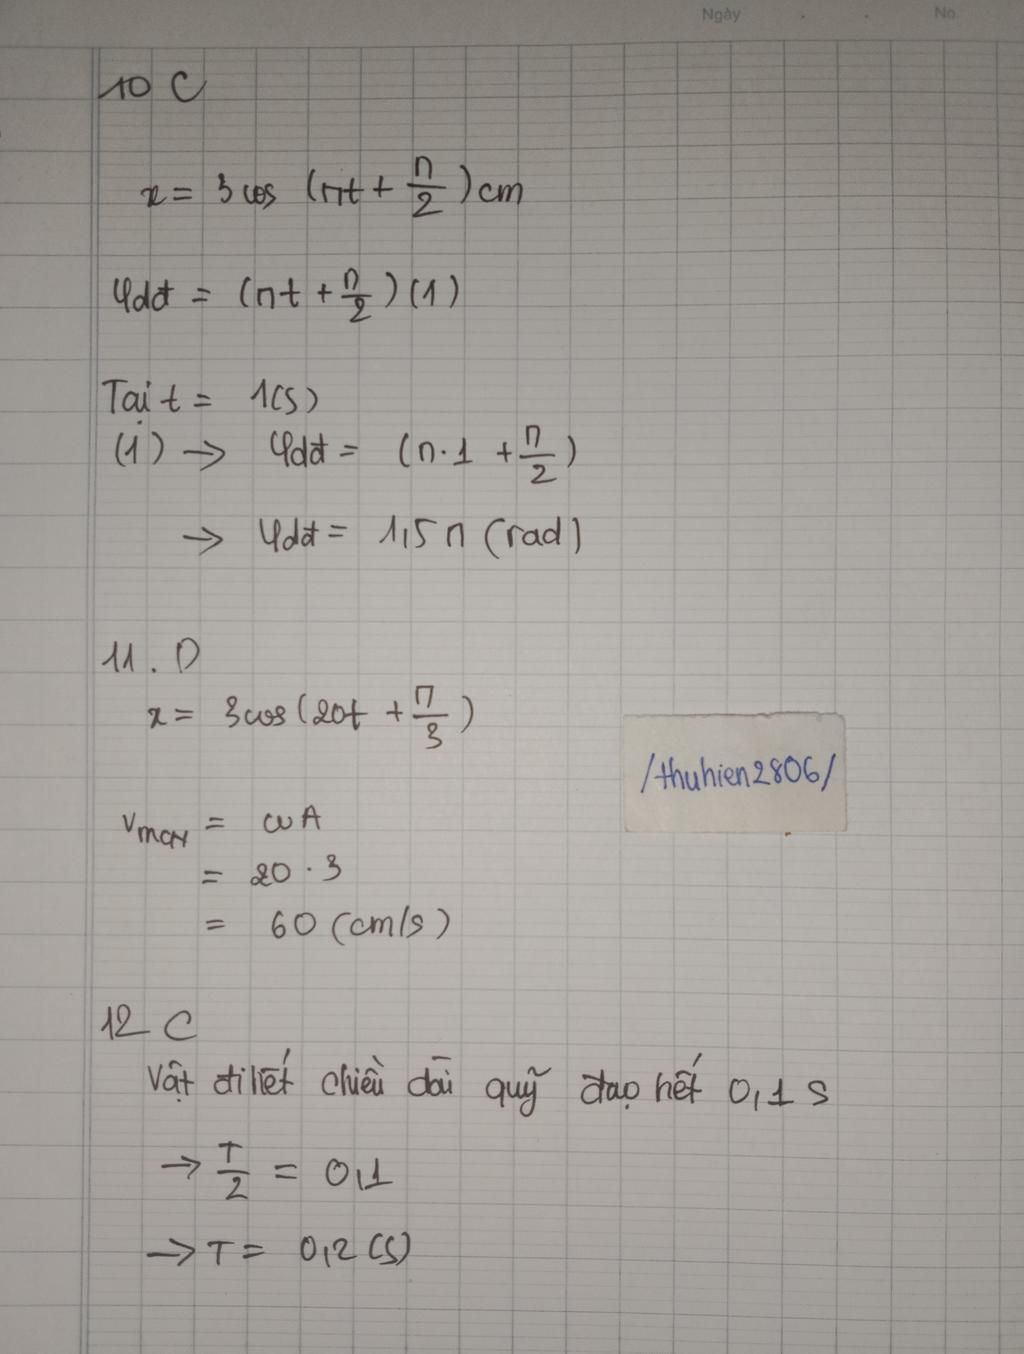 Ngày . . No.
10 C
x = 3 cos (πt + π/2) cm
φdđ = (πt + π/2) (1)
Tại t = 1(s)
(1) → φdđ = (π.1 + π/2)
→ φdđ = 1,5π (rad)
11. D
x = 3cos(20t + π/3)
/thuhien2806/
vmax = ωA
= 20 . 3
= 60 (cm/s)
12 C
Vật đi hết chiều dài quỹ đạo hết 0,1 s
→ T/2 = 0,1
→ T = 0,2 (s)